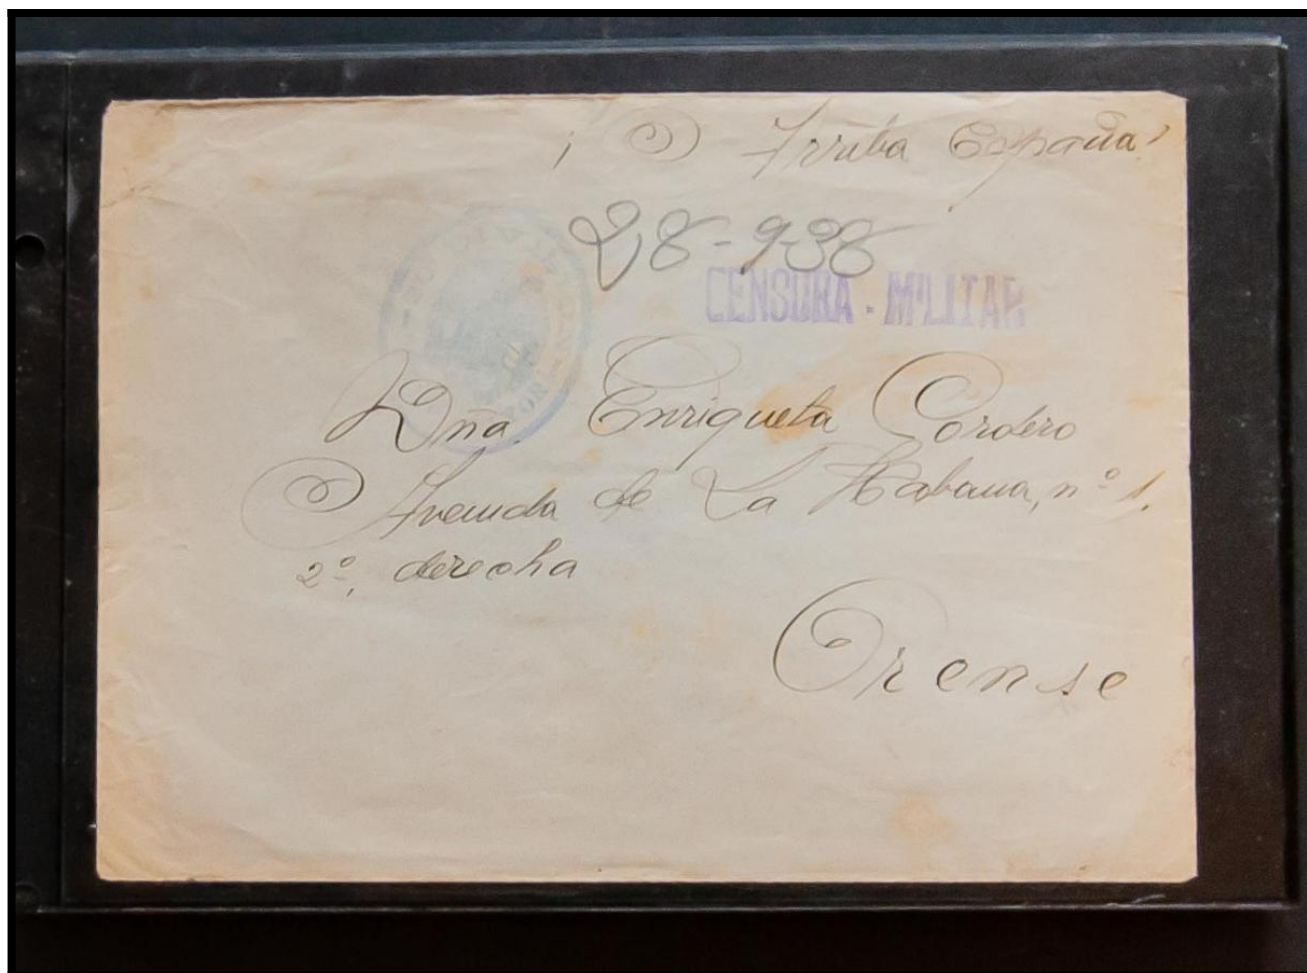 ¡Arriba España!
28-9-38
CENSURA - MILITAR
Dña. Enriqueta Cordero
Avenida de La Habana, nº 1.
2º, derecha
Orense